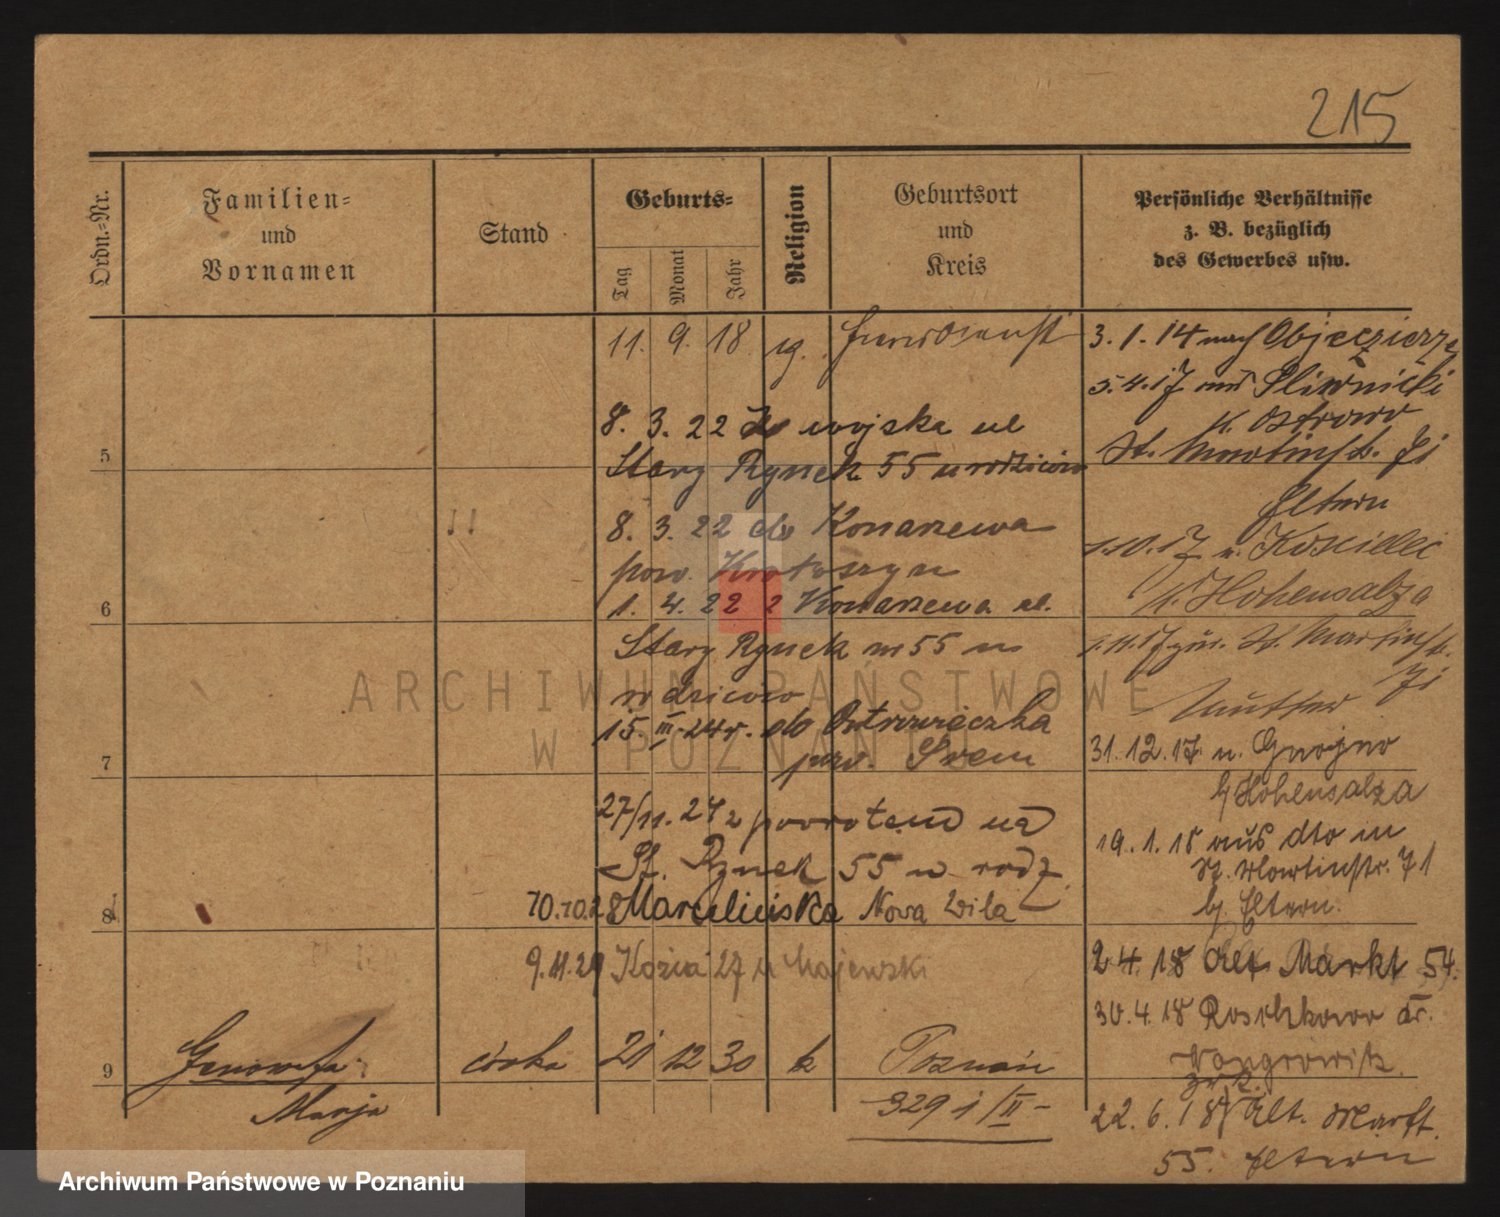 215
Ordn.=Nr.
Familien=
und
Vornamen
Stand
Geburts=
Tag
Monat
Jahr
Religion
Geburtsort
und
Kreis
Persönliche Verhältnisse
z. B. bezüglich
des Gewerbes usw.
11. 9. 18
8. 3. 22 Z wojska ul
Stary Rynek 55 u rodziców
8. 3. 22 do Konarzewa
pow. Krotoszyn
1. 4. 22 z Konarzewa ul.
Stary Rynek nr 55 u
rodziców
15. III. 24 r. do Ostrowieczka
pow. Śrem
27/11. 24 z powrotem na
St. Rynek 55 u rodz.
10.10.28 Marcelińska Nowa Wila
9.11.29 Kozia 27 u Majewski
5
6
7
8
9
Genowefa
Marja
córka
21 12 30 k
Poznań
929 i/II
3. 1. 14 nach Objezierze
5. 4. 17 aus Sliwnicki
K. Ostrowo
St. Martinstr. 71
Eltern
1.10.17 n. Koscielec
K. Hohensalza
1.11.17 zur. St. Martinstr.
71
Mutter
31.12.17. n. Gnojno
b/Hohensalza
19. 1. 18 aus dto in
St. Martinstr. 71
b/ Eltern.
2. 4. 18 Alt Markt 54.
30. 4. 18 Roschkowo Kr.
Wongrowitz
zrk.
22. 6. 18 Alt. Markt.
55. Eltern
ARCHIWUM PAŃSTWOWE
W POZNANIU
Archiwum Państwowe w Poznaniu